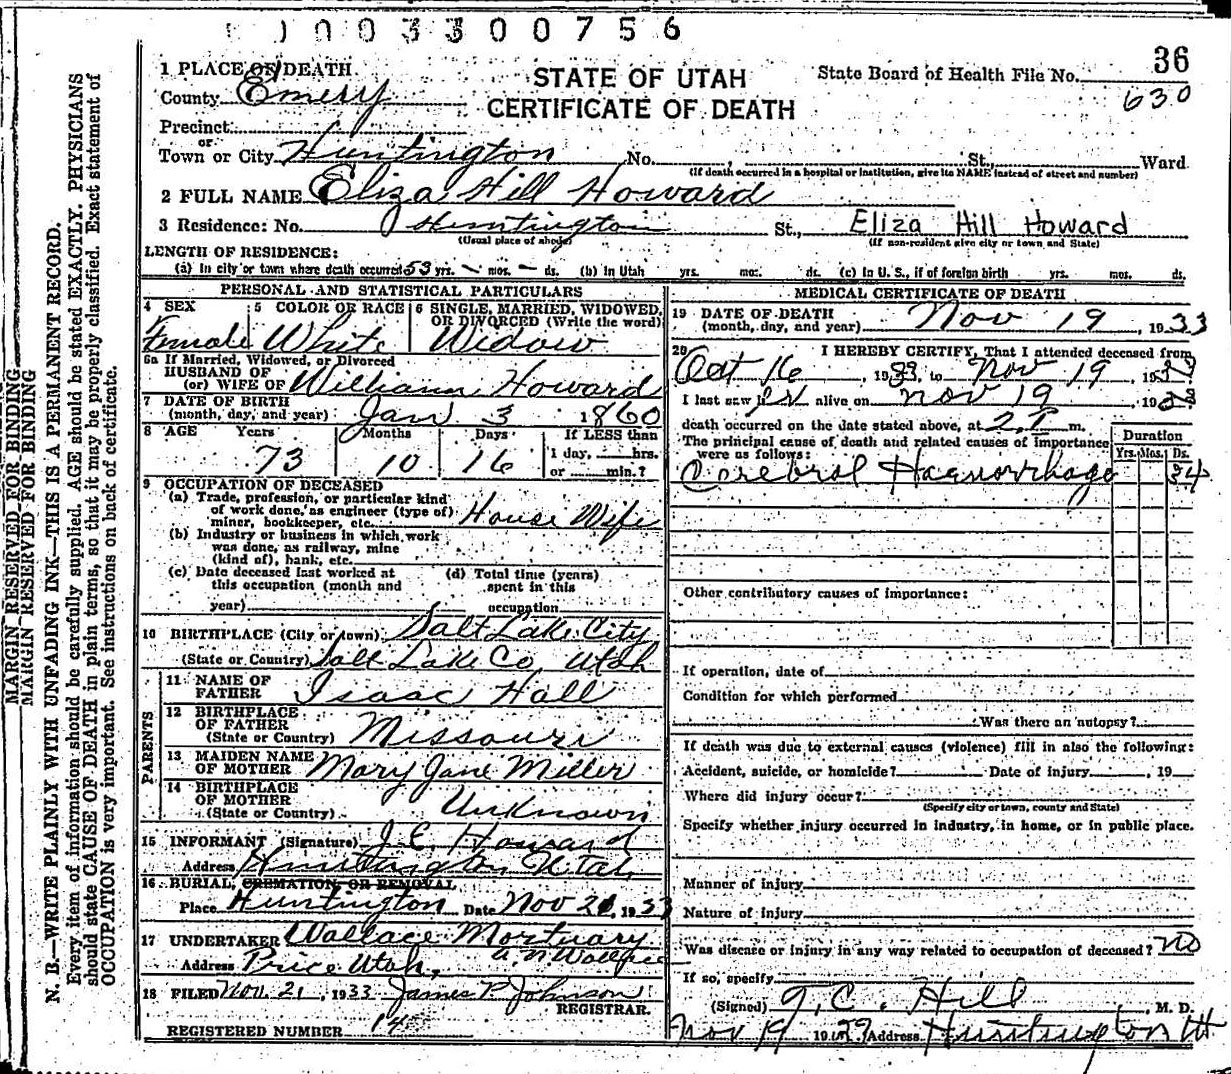 1003300756
36
1 PLACE OF DEATH
STATE OF UTAH
State Board of Health File No.
County Emery
CERTIFICATE OF DEATH
630
Precinct
or
Town or City Huntington No. , St., Ward
(If death occurred in a hospital or institution, give its NAME instead of street and number)
2 FULL NAME Eliza Hill Howard
3 Residence: No. Huntington St., Eliza Hill Howard
(Usual place of abode) (If non-resident give city or town and State)
LENGTH OF RESIDENCE:
(a) In city or town where death occurred 53 yrs. – mos. – ds. (b) In Utah yrs. mos. ds. (c) In U. S., if of foreign birth yrs. mos. ds.
PERSONAL AND STATISTICAL PARTICULARS
4 SEX 5 COLOR OR RACE 6 SINGLE, MARRIED, WIDOWED, OR DIVORCED (Write the word)
Female White Widow
6a If Married, Widowed, or Divorced
HUSBAND OF
(or) WIFE OF William Howard
7 DATE OF BIRTH
(month, day, and year) Jan 3 1860
8 AGE Years Months Days If LESS than
73 10 16 1 day, hrs.
or min.?
9 OCCUPATION OF DECEASED
(a) Trade, profession, or particular kind
of work done, as engineer (type of)
miner, bookkeeper, etc. House Wife
(b) Industry or business in which work
was done, as railway, mine
(kind of), bank, etc.
(c) Date deceased last worked at (d) Total time (years)
this occupation (month and spent in this
year) occupation
10 BIRTHPLACE (City or town) Salt Lake City
(State or Country) Salt Lake Co, Utah
PARENTS
11 NAME OF
FATHER Isaac Hall
12 BIRTHPLACE
OF FATHER
(State or Country) Missouri
13 MAIDEN NAME
OF MOTHER Mary Jane Miller
14 BIRTHPLACE
OF MOTHER
(State or Country) Unknown
15 INFORMANT (Signature) J. E. Howard
Address Huntington Utah
16 BURIAL, CREMATION, OR REMOVAL
Place Huntington Date Nov 21, 1933
17 UNDERTAKER Wallace Mortuary
Address Price Utah,
18 FILED Nov. 21, 1933 James P. Johnson
REGISTRAR.
REGISTERED NUMBER 14
MEDICAL CERTIFICATE OF DEATH
19 DATE OF DEATH
(month, day, and year) Nov 19, 1933
20 I HEREBY CERTIFY, That I attended deceased from
Oct 16, 1933, to Nov 19, 1933
I last saw her alive on Nov 19, 1933
death occurred on the date stated above, at 2 P m.
The principal cause of death and related causes of importance
were as follows:
Duration
Yrs. Mos. Ds.
Cerebral Haemorrhage 34
Other contributory causes of importance:
If operation, date of
Condition for which performed
Was there an autopsy?
If death was due to external causes (violence) fill in also the following:
Accident, suicide, or homicide? Date of injury , 19
Where did injury occur?
(Specify city or town, county and State)
Specify whether injury occurred in industry, in home, or in public place.
Manner of injury
Nature of injury
Was disease or injury in any way related to occupation of deceased? no
If so, specify
(Signed) T. C. Hill, M. D.
Nov 19 Address Huntington Ut
MARGIN RESERVED FOR BINDING
MARGIN RESERVED FOR BINDING
N. B.—WRITE PLAINLY WITH UNFADING INK—THIS IS A PERMANENT RECORD.
Every item of information should be carefully supplied. AGE should be stated EXACTLY. PHYSICIANS
should state CAUSE OF DEATH in plain terms, so that it may be properly classified. Exact statement of
OCCUPATION is very important. See instructions on back of certificate.